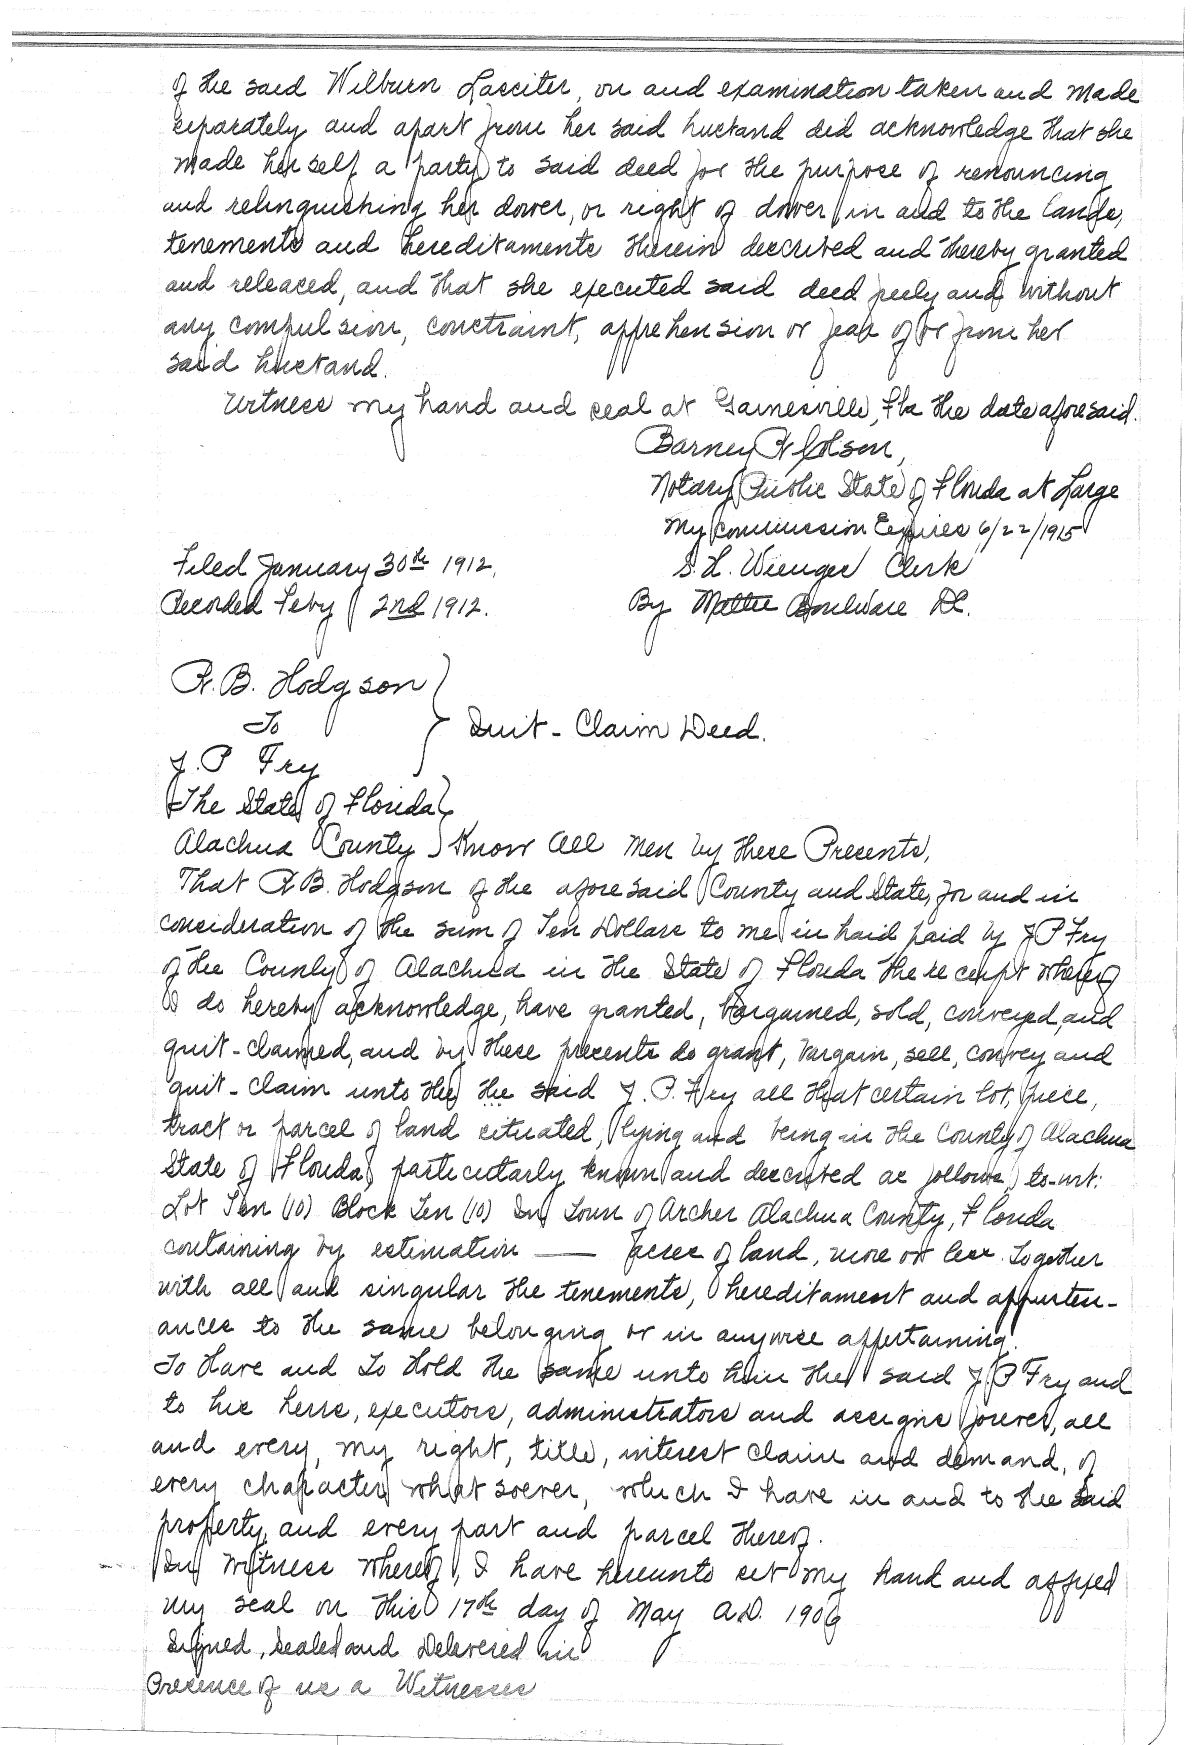 of the said Wilburn Lasciter, on and examination taken and made
separately and apart from her said husband did acknowledge that she
made herself a party to said deed for the purpose of renouncing
and relinquishing her dower, or right of dower in and to the lands,
tenements and hereditaments therein described and thereby granted
and released, and that she executed said deed freely and without
any compulsion, constraint, apprehension or fear of or from her
said husband.
Witness my hand and seal at Gainesville, Fla the date aforesaid.
Barney R Colson,
Notary Public State of Florida at Large
My commission Expires 6/22/1915
Filed January 30th 1912.
S. H. Wienges Clerk
Recorded Feby 2nd 1912.
By Mattie Boulware DC.
R. B. Hodgson
To
Quit-Claim Deed.
J. P Fry
The State of Florida
Alachua County Know All Men by These Presents,
That R B. Hodgson of the aforesaid County and State, for and in
consideration of the sum of Ten Dollars to me in haid paid by J P Fry
of the County of Alachua in the State of Florida the receipt whereof
I do hereby acknowledge, have granted, bargained, sold, conveyed, and
quit-claimed, and by these presents do grant, bargain, sell, convey and
quit-claim unto the the said J. P. Fry all that certain lot, piece,
tract or parcel of land situated, lying and being in the County of Alachua
State of Florida particularly known and described as follows, to-wit:
Lot Ten (10) Block Ten (10) In Town of Archer Alachua County, Florida
containing by estimation —— acres of land, more or less. Together
with all and singular the tenements, hereditament and appurten-
ances to the same belonging or in anywise appertaining.
To Have and To Hold the same unto him the said J P Fry and
to his heirs, executors, administrators and assigns forever, all
and every, my right, title, interest claim and demand, of
every character whatsoever, which I have in and to the said
property, and every part and parcel thereof.
In Witness whereof, I have hereunto set my hand and affixed
my seal on this 17th day of May A.D. 1906
Signed, Sealed and Delivered in
Presence of us a Witnesses